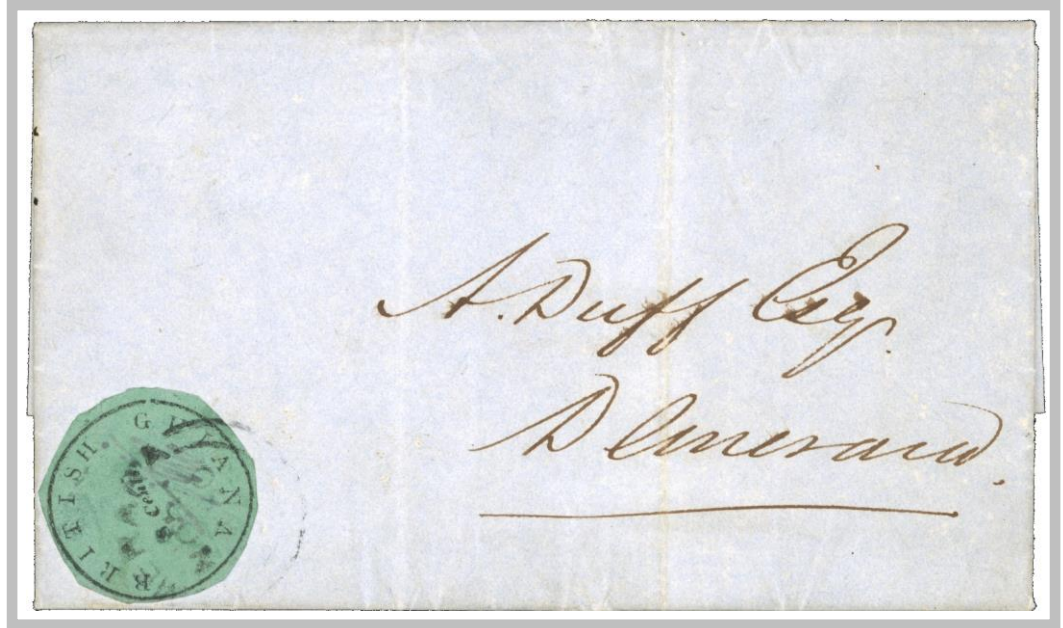 A. Duff Esq.
Demerara.
BRITISH. GUYANA
cents